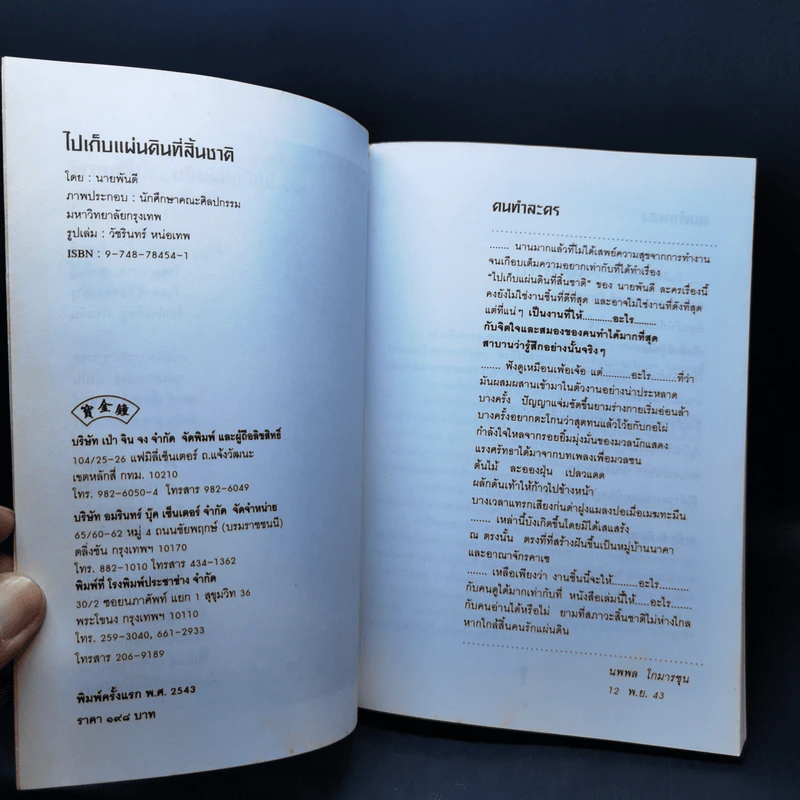 ไปเก็บแผ่นดินที่สิ้นชาติ
โดย : นายพันดี
ภาพประกอบ : นักศึกษาคณะศิลปกรรม
มหาวิทยาลัยกรุงเทพ
รูปเล่ม : วัชรินทร์ หน่อเทพ
ISBN : 9-748-78454-1
寶金鐘
บริษัท เป่า จิน จง จำกัด จัดพิมพ์ และผู้ถือลิขสิทธิ์
104/25-26 แฟมิลี่เซ็นเตอร์ ถ.แจ้งวัฒนะ
เขตหลักสี่ กทม. 10210
โทร. 982-6050-4 โทรสาร 982-6049
บริษัท อมรินทร์ บุ๊ค เซ็นเตอร์ จำกัด จัดจำหน่าย
65/60-62 หมู่ 4 ถนนชัยพฤกษ์ (บรมราชชนนี)
ตลิ่งชัน กรุงเทพฯ 10170
โทร. 882-1010 โทรสาร 434-1362
พิมพ์ที่ โรงพิมพ์ประชาช่าง จำกัด
30/2 ซอยนภาศัพท์ แยก 1 สุขุมวิท 36
พระโขนง กรุงเทพฯ 10110
โทร. 259-3040, 661-2933
โทรสาร 206-9189
พิมพ์ครั้งแรก พ.ศ. 2543
ราคา ๑๙๘ บาท
คนทำละคร
....... นานมากแล้วที่ไม่ได้เสพย์ความสุขจากการทำงาน
จนเกือบเต็มความอยากเท่ากับที่ได้ทำเรื่อง
"ไปเก็บแผ่นดินที่สิ้นชาติ" ของ นายพันดี ละครเรื่องนี้
คงยังไม่ใช่งานชิ้นที่ดีที่สุด และอาจไม่ใช่งานที่ดังที่สุด
แต่ที่แน่ๆ เป็นงานที่ให้..........อะไร........
กับจิตใจและสมองของคนทำได้มากที่สุด
สาบานว่ารู้สึกอย่างนั้นจริงๆ
....... ฟังดูเหมือนเพ้อเจ้อ แต่........อะไร........ที่ว่า
มันผสมผสานเข้ามาในตัวงานอย่างน่าประหลาด
บางครั้ง ปัญญาแจ่มชัดขึ้นยามร่างกายเริ่มอ่อนล้า
บางครั้งอยากตะโกนว่าสุดทนแล้วโว้ยกับกอไผ่
กำลังใจไหลจากรอยยิ้มมุ่งมั่นของมวลนักแสดง
แรงศรัทธาได้มาจากบทเพลงเพื่อมวลชน
ต้นไม้ ละอองฝุ่น เปลวแดด
ผลักดันเท้าให้ก้าวไปข้างหน้า
บางเวลาแทรกเสียงก่นด่าฝูงแมลงปอเมื่อเมฆทะมึน
....... เหล่านี้บังเกิดขึ้นโดยมิได้เสแสร้ง
ณ ตรงนั้น ตรงที่ที่สร้างฝันขึ้นเป็นหมู่บ้านนาคา
และอาณาจักรคาเข
....... เหลือเพียงว่า งานชิ้นนี้จะให้.......อะไร.......
กับคนดูได้มากเท่ากับที่ หนังสือเล่มนี้ให้.....อะไร.......
กับคนอ่านได้หรือไม่ ยามที่สภาวะสิ้นชาติไม่ห่างไกล
หากใกล้สิ้นคนรักแผ่นดิน
นพพล โกมารชุน
12 พ.ย. 43